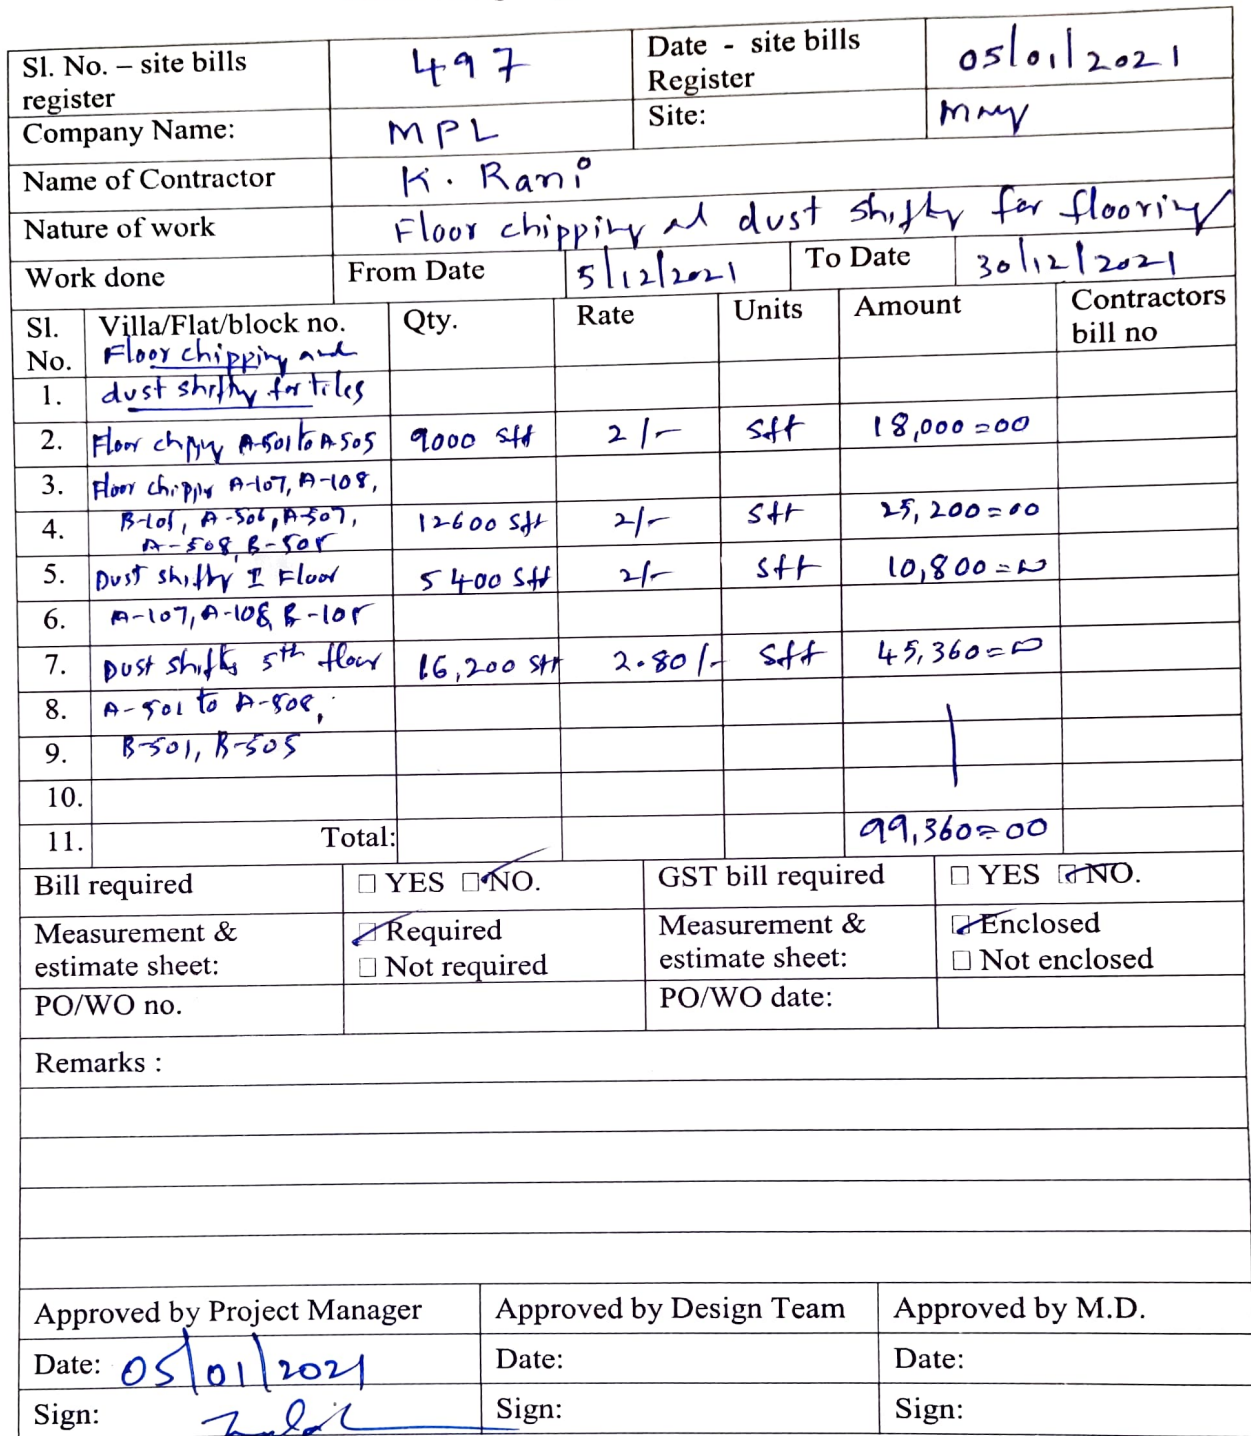 Sl. No. – site bills register 497 Date - site bills Register 05/01/2021
Company Name: MPL Site:
Name of Contractor K. Rani
Nature of work Floor chipping and dust shifting for flooring
Work done From Date 5/12/2021 To Date 30/12/2021
Sl. No. Villa/Flat/block no. Qty. Rate Units Amount Contractors bill no
Floor chipping and
1. dust shifting for tiles
2. Floor chipping A-501 to A-505 9000 Sft 2/- Sft 18,000=00
3. Floor chipping A-107, A-108,
4. A-506, A-507, 12600 Sft 2/- Sft 25,200=00
A-508, B-505
5. Dust shifting I Floor 5400 Sft 2/- Sft 10,800=00
6. A-107, A-108, B-105
7. Dust shifting 5th floor 16,200 Sft 2.80/- Sft 45,360=00
8. A-501 to A-508,
9. B-501, B-505
10.
11. Total: 99,360=00
Bill required □ YES □ NO. GST bill required □ YES □ NO.
Measurement & estimate sheet: □ Required Measurement & estimate sheet: □ Enclosed
□ Not required □ Not enclosed
PO/WO no. PO/WO date:
Remarks :
Approved by Project Manager Approved by Design Team Approved by M.D.
Date: 05/01/2021 Date: Date:
Sign: Sign: Sign: